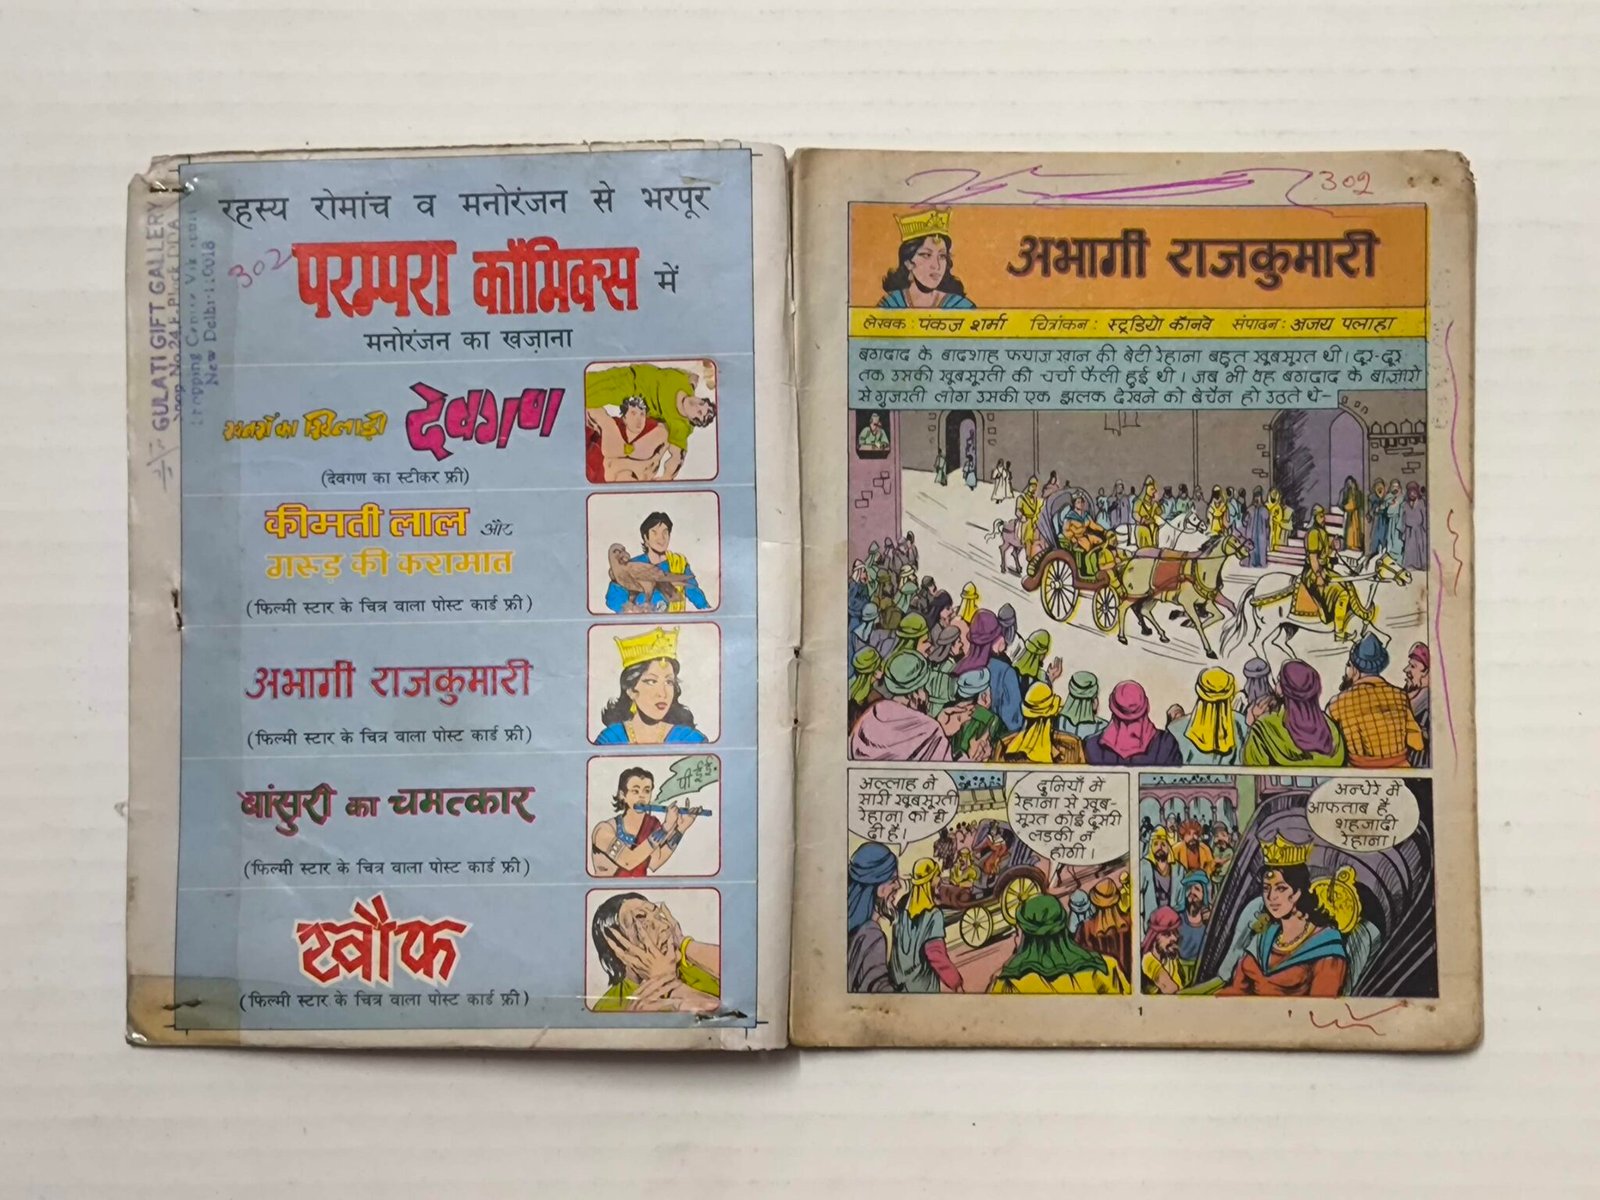 रहस्य रोमांच व मनोरंजन से भरपूर
302
परम्परा कॉमिक्स में
मनोरंजन का खज़ाना
खतरों का खिलाड़ी देवगण
(देवगण का स्टीकर फ्री)
कीमती लाल और
गरूड़ की करामात
(फिल्मी स्टार के चित्र वाला पोस्ट कार्ड फ्री)
अभागी राजकुमारी
(फिल्मी स्टार के चित्र वाला पोस्ट कार्ड फ्री)
बांसुरी का चमत्कार
(फिल्मी स्टार के चित्र वाला पोस्ट कार्ड फ्री)
खौफ
(फिल्मी स्टार के चित्र वाला पोस्ट कार्ड फ्री)
GULATI GIFT GALLERY
Shop No.24 F Block DDA
Shopping Centre
New Delhi-110018
302
अभागी राजकुमारी
लेखक: पंकज शर्मा चित्रांकन: स्टूडियो कॉनवे संपादन: अजय पलाहा
बगदाद के बादशाह फय्याज खान की बेटी रेहाना बहुत खूबसूरत थी। दूर-दूर
तक उसकी खूबसूरती की चर्चा फैली हुई थी। जब भी वह बगदाद के बाज़ारों
से गुजरती लोग उसकी एक झलक देखने को बेचैन हो उठते थे-
अल्लाह ने
सारी खूबसूरती
रेहाना को ही
दी है।
दुनियाँ में
रेहाना से खूब-
सूरत कोई दूसरी
लड़की न
होगी।
अन्धेरे में
आफताब है
शहजादी
रेहाना।
1